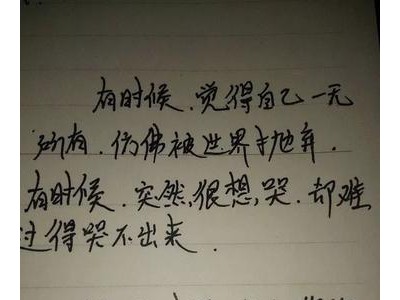 有时候.觉得自己一无
所有.仿佛被世界抛弃.
有时候.突然,很想,哭.却难
过得哭不出来.